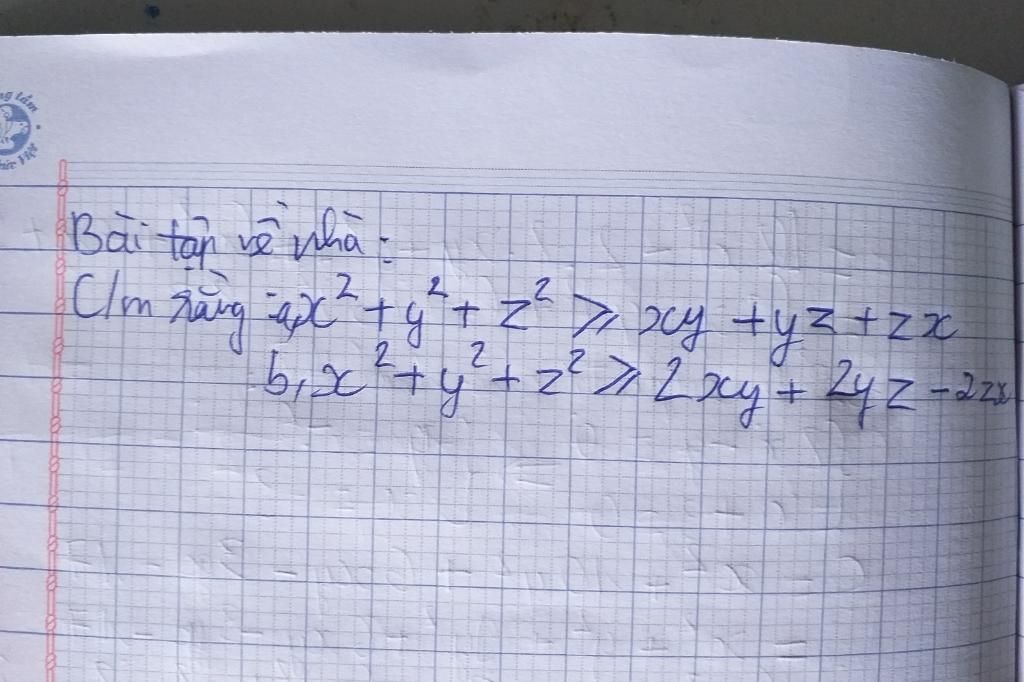 Bài tập về nhà:
C/m rằng a, x² + y² + z² ⩾ xy + yz + zx
b, x² + y² + z² ⩾ 2xy + 2yz - 2zx